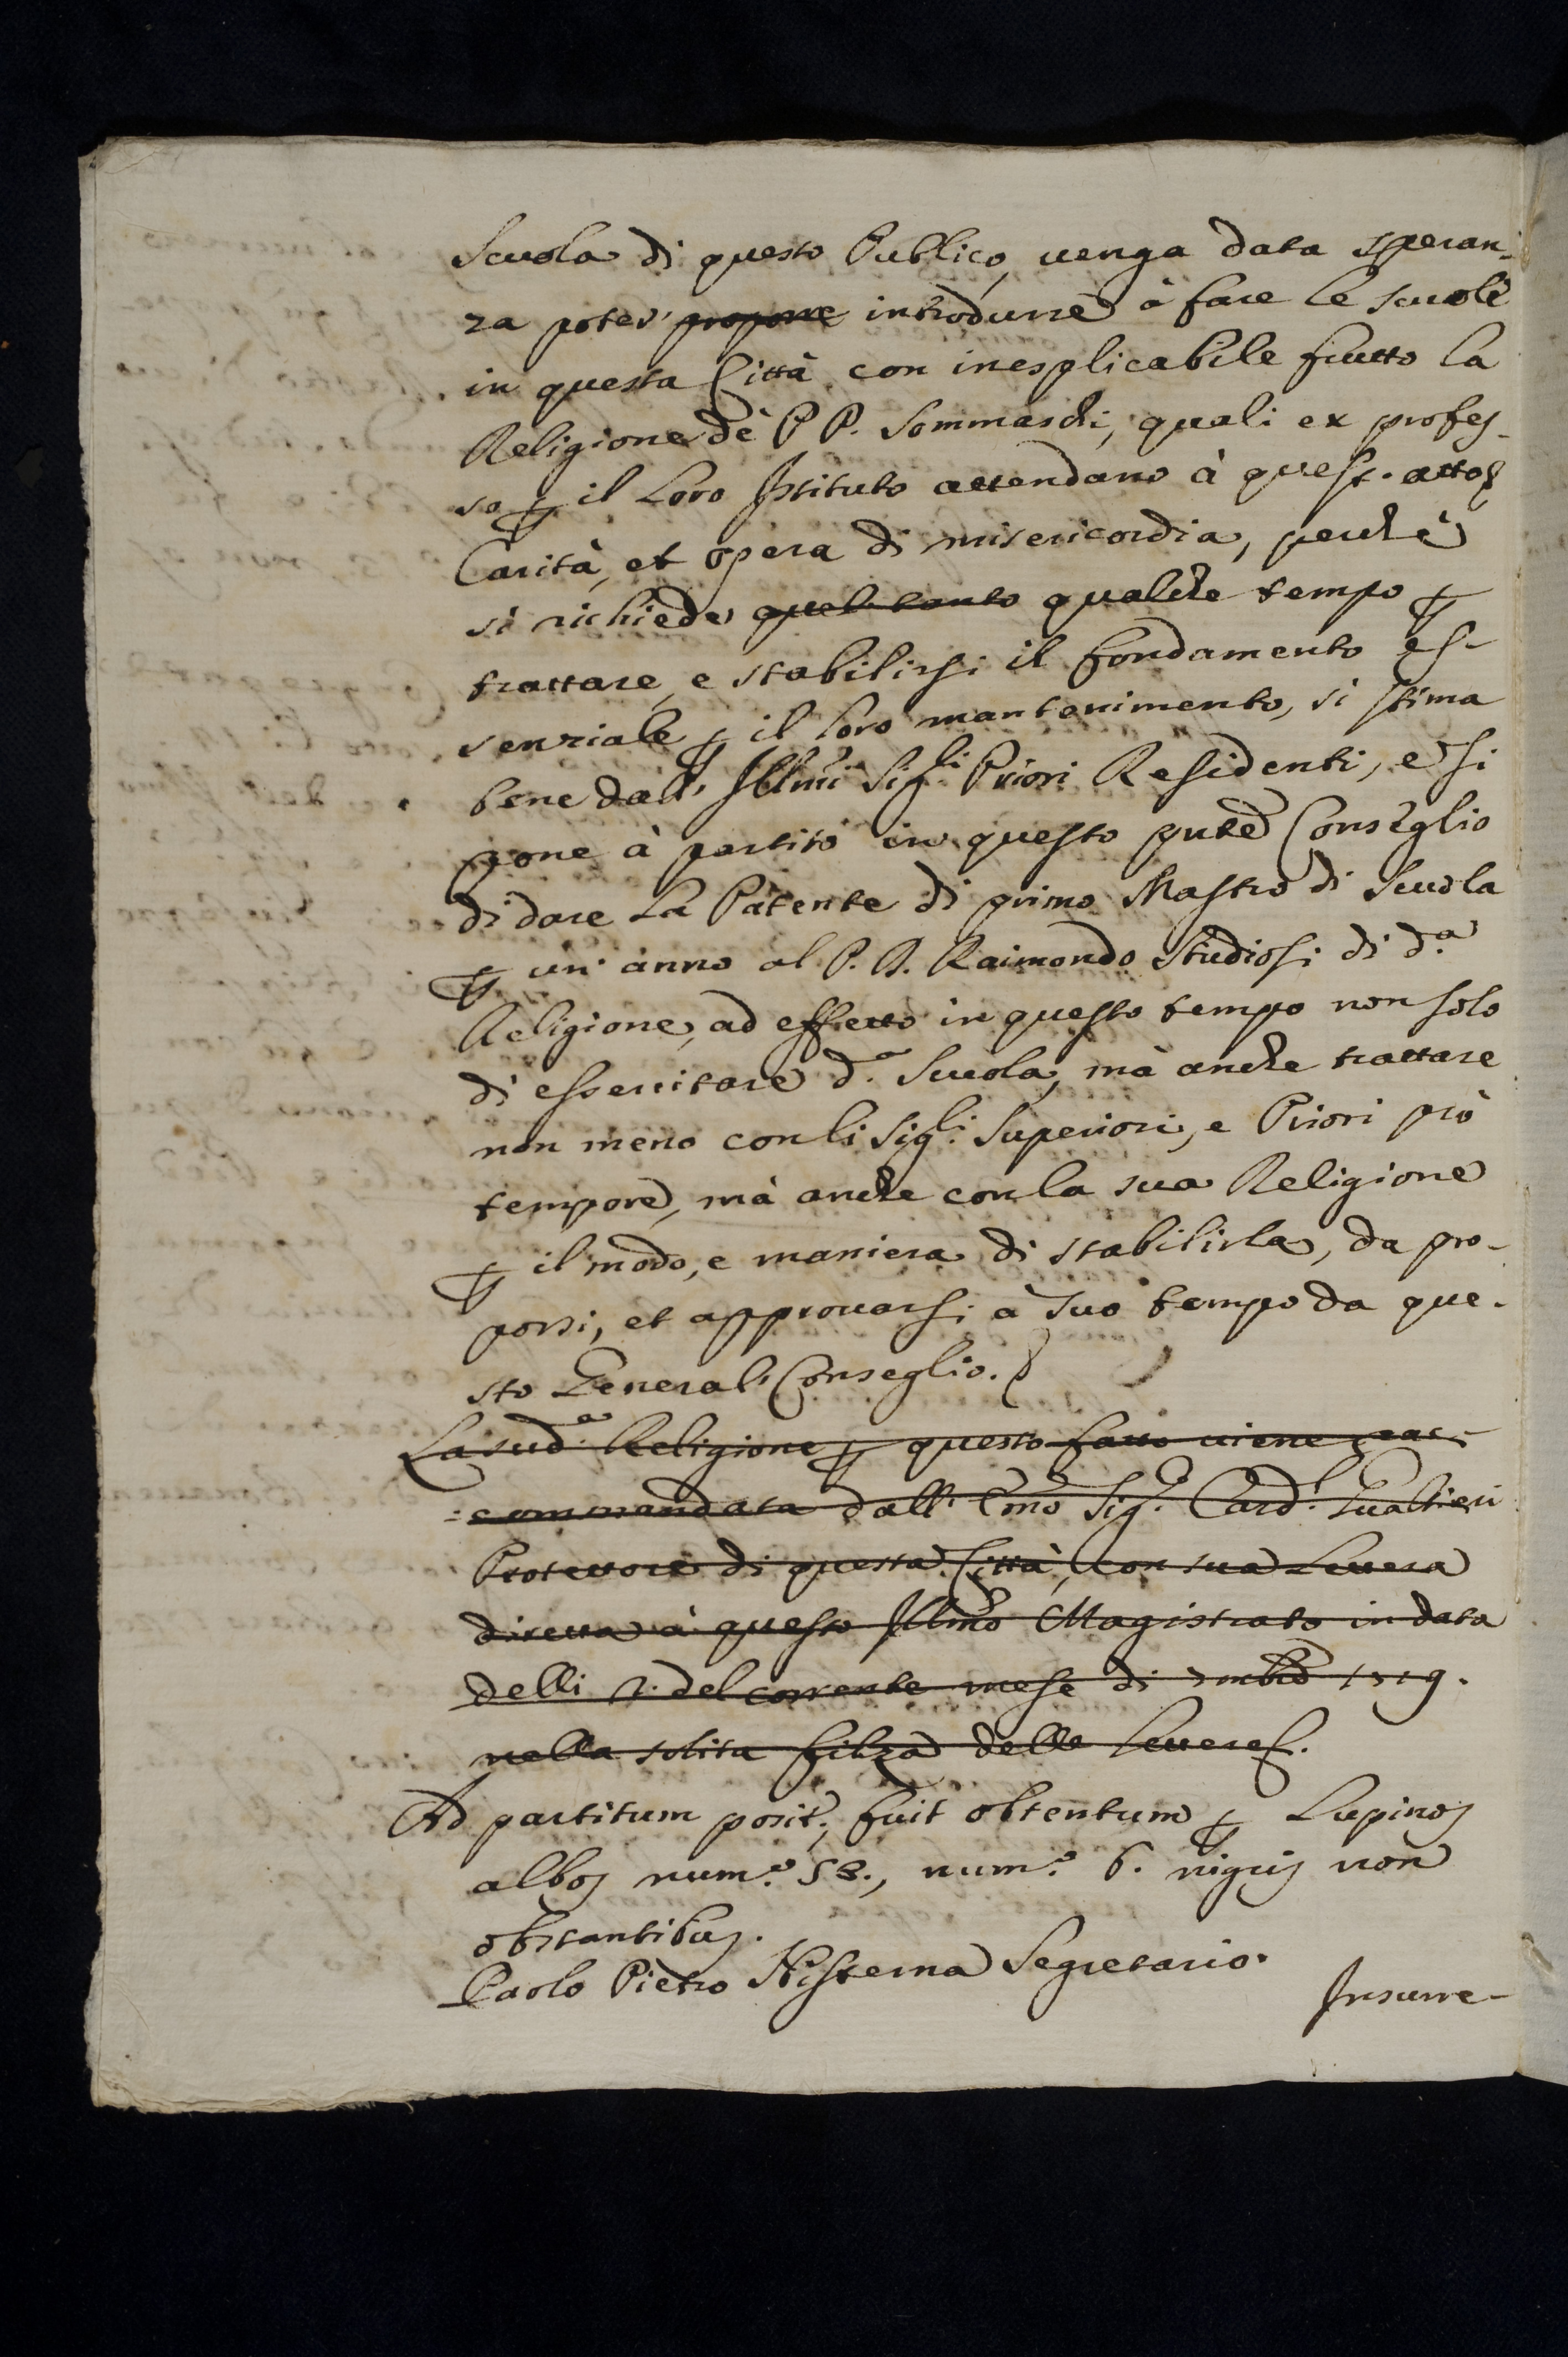 Scuola di questo Publico, venga data speran-
za poter' proporre introdurre à fare le scuole
in questa Città con inesplicabile frutto la
Religione dè P P. Sommaschi, quali ex profes-
so ꝑ il Loro Istituto attendano à quest. atto
Carità, et opera di misericordia, perche
si richiede quel tanto qualche tempo ꝑ
trattare, e stabilirsi il fondamento es-
senziale ꝑ il loro mantenimento, si stima
bene dall' Illmi Sigri Priori Residenti, e si
pone à partito in questo pnte Conseglio
di dare La Patente di primo Mastro di Scuola
ꝑ un' anno al P. D. Raimondo Studiosi di d.a
Religione, ad effetto in questo tempo non solo
di essercitare d.a Scuola, mà anche trattare
non meno con li Sigri Superiori, e Priori prò
tempore, mà anche con la sua Religione
ꝑ il modo, e maniera di stabilirla, da pro-
porsi, et approvarsi à suo tempo da que-
sto General' Conseglio.
La sud.a Religione ꝑ questo fatto viene rac-
=commandata dall' Emo Sig.r Card.l Gualtieri
Protettore di questa Città, con sua Lettera
diretta à questo Illmo Magistrato in data
delli 2. del corrente mese di
nella solita filza delle Lettere.
Ad partitum posit., fuit obtentum ꝑ Lupinos
albos num.o 53., num.o 6. nigris non
obstantibus.
Paolo Pietro Segretario.
Insurre-